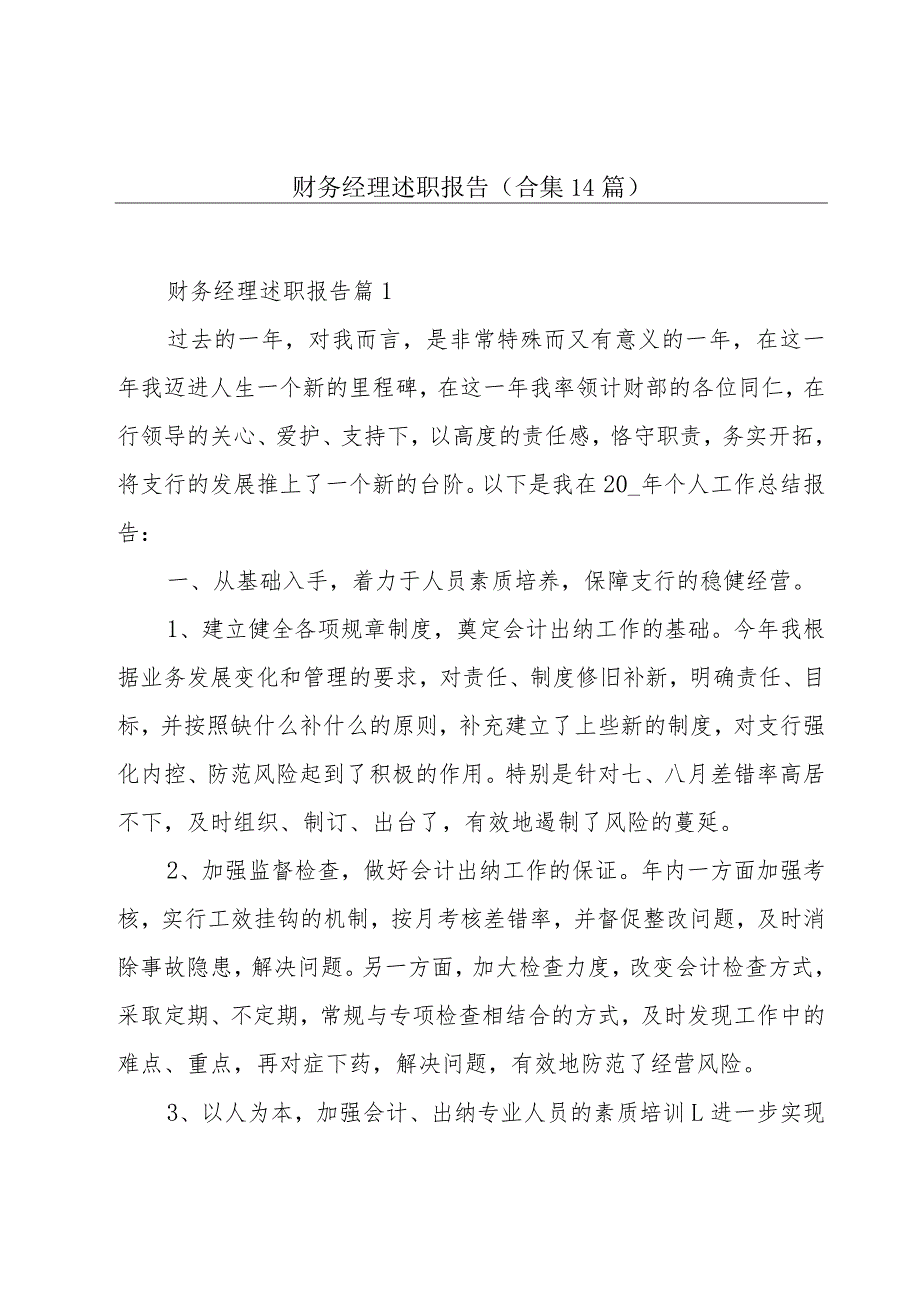 财务经理述职报告（合集14篇）
财务经理述职报告篇1
过去的一年，对我而言，是非常特殊而又有意义的一年，在这一
年我迈进人生一个新的里程碑，在这一年我率领计财部的各位同仁，在
行领导的关心、爱护、支持下，以高度的责任感，恪守职责，务实开拓，
将支行的发展推上了一个新的台阶。以下是我在20_年个人工作总结报
告：
一、从基础入手，着力于人员素质培养，保障支行的稳健经营。
1、建立健全各项规章制度，奠定会计出纳工作的基础。今年我根
据业务发展变化和管理的要求，对责任、制度修旧补新，明确责任、目
标，并按照缺什么补什么的原则，补充建立了上些新的制度，对支行强
化内控、防范风险起到了积极的作用。特别是针对七、八月差错率高居
不下，及时组织、制订、出台了，有效地遏制了风险的蔓延。
2、加强监督检查，做好会计出纳工作的保证。年内一方面加强考
核，实行工效挂钩的机制，按月考核差错率，并督促整改问题，及时消
除事故隐患，解决问题。另一方面，加大检查力度，改变会计检查方式，
采取定期、不定期，常规与专项检查相结合的方式，及时发现工作中的
难点、重点，再对症下药，解决问题，有效地防范了经营风险。
3、以人为本，加强会计、出纳专业人员的素质培训L进一步实现